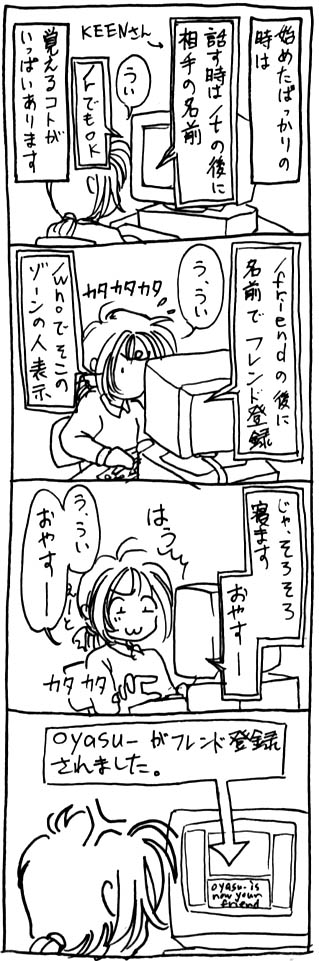 始めたばっかりの
時は
KEENさん
話す時は/tの後に
相手の名前
うい
/rでもOK
覚えるコトが
いっぱいあります
/friendの後に
名前でフレンド登録
う、うい
カタカタカタ
/whoでそこの
ゾーンの人表示
じゃ、そろそろ
寝ます
おやすー
はうっ
う、うい
おやすー
えーと
カタカタ
oyasu-がフレンド登録
されました。
oyasu- is
now your
friend